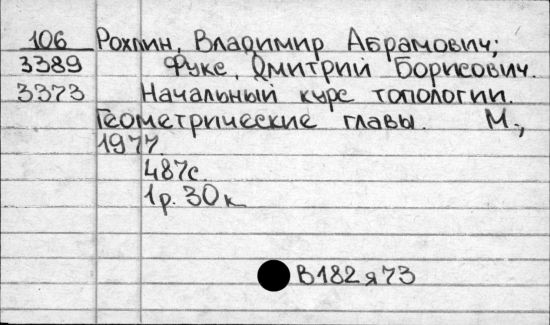 106 Рохлин, Владимир Абрамович;
3389 Фукс, Дмитрий Борисович.
3373 Начальный курс топологии.
Геометрические главы. М.,
1977
487с.
1р. 30к
В182я73